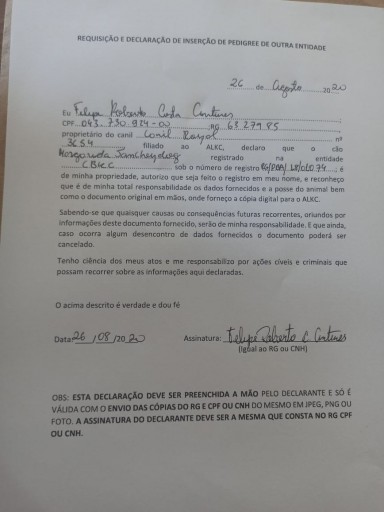 REQUISIÇÃO E DECLARAÇÃO DE INSERÇÃO DE PEDIGREE DE OUTRA ENTIDADE
26 de Agosto 2020
Eu Felipe Roberto Costa
CPF 043.730.914-00 RG 6327985
proprietário do canil Canil Royal nº
3654 filiado ao ALKC, declaro que o cão
registrado na entidade
CBKC sob o número de registro é
de minha propriedade, autorizo que seja feito o registro em meu nome, e reconheço
que é de minha total responsabilidade os dados fornecidos e a posse do animal bem
como o documento original em mãos, onde forneço a cópia digital para o ALKC.
Sabendo-se que quaisquer causas ou consequências futuras recorrentes, oriundos por
informações deste documento fornecido, serão de minha responsabilidade. E que ainda,
caso ocorra algum desencontro de dados fornecidos o documento poderá ser
cancelado.
Tenho ciência dos meus atos e me responsabilizo por ações cíveis e criminais que
possam recorrer sobre as informações aqui declaradas.
O acima descrito é verdade e dou fé
Data: 26 /08 /2020 Assinatura: Felipe Roberto C
(Igual ao RG ou CNH)
OBS: ESTA DECLARAÇÃO DEVE SER PREENCHIDA A MÃO PELO DECLARANTE E SÓ É
VÁLIDA COM O ENVIO DAS CÓPIAS DO RG E CPF OU CNH DO MESMO EM JPEG, PNG OU
FOTO. A ASSINATURA DO DECLARANTE DEVE SER A MESMA QUE CONSTA NO RG CPF
OU CNH.